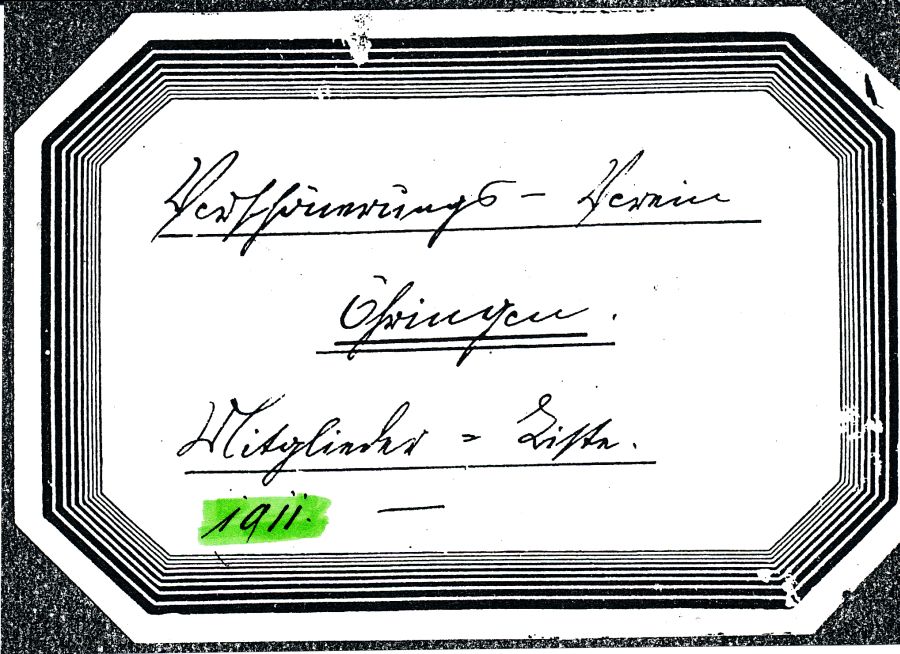 Verschönerungs - Verein
Öhringen.
Mitglieder = Liste.
1911. —